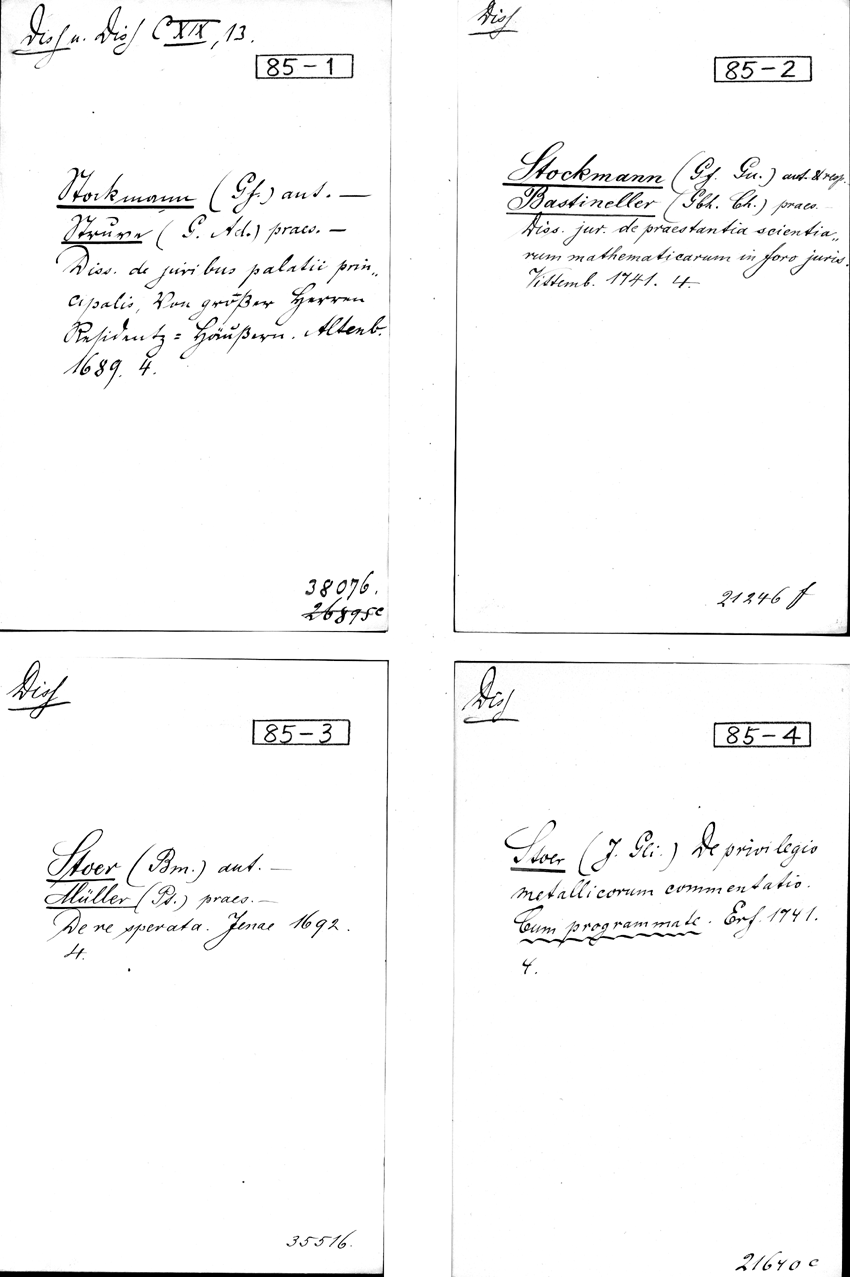 Diss u. Diss C XIX, 13.
85-1
Stockmann (Gf.) aut. —
Struve (G. Ad.) praes. —
Diss. de juribus palatii prin„
cipalis, Von großer Herren
Residentz = Häußern. Altenb.
1689. 4.
38076.
26895c
Diss
85-2
Stockmann (Gf. Gu.) aut. & resp.
Bastineller (Gbh. Ch.) praes. —
Diss. jur. de praestantia scientia„
rum mathematicarum in foro juris.
Vittemb. 1741. 4.
21246 f
Diss
85-3
Stoer (Bm.) aut. —
Müller (Pt.) praes. —
De re sperata. Jenae 1692.
4.
35516.
Diss
85-4
Stoer (J. Gli.) De privilegio
metallicorum commentatio.
Cum programmate. Erf. 1741.
4.
21640 c